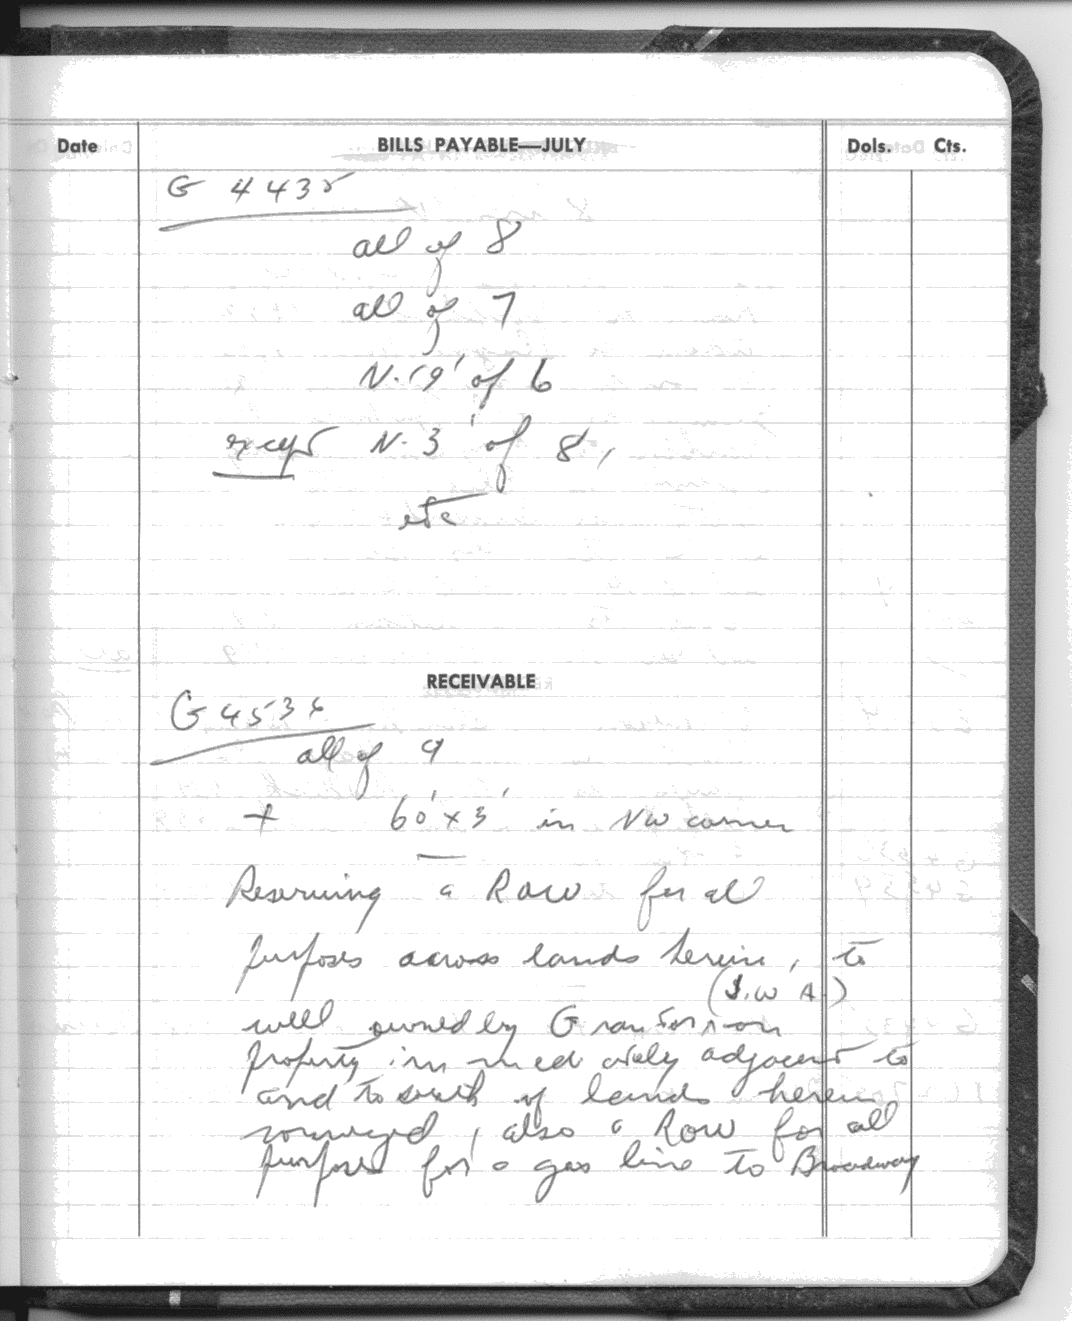 Date BILLS PAYABLE—JULY Dols. Cts.
G 4435
all of 8
all of 7
N. 19' of 6
except N. 3' of 8,
etc
RECEIVABLE
G 4536
all of 9
+ 60' x 3' in NW corner
Reserving a Row for all
purposes across lands herein, to
(S.W A.)
well owned by Grantor on
property immediately adjacent to
and to south of lands herein
conveyed, also a Row for all
purposes for a gas line to Broadway